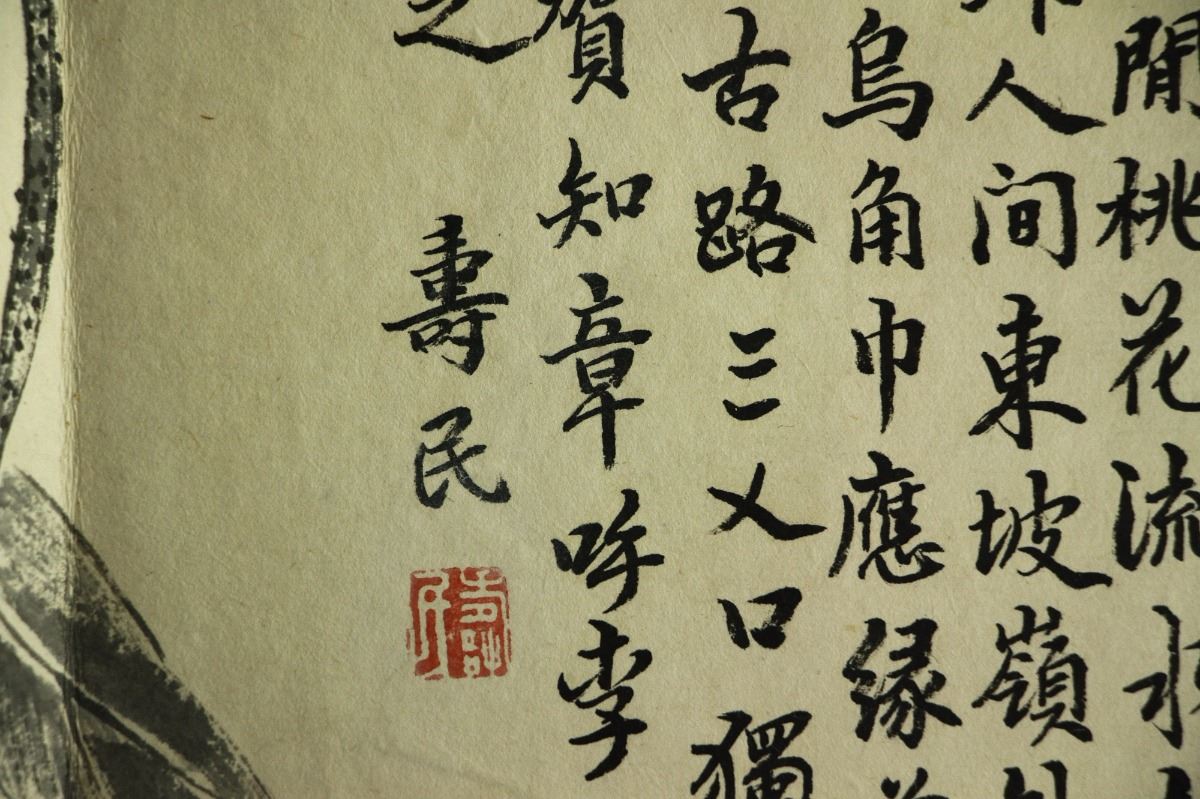 閒桃花流水
人间東坡嶺外
烏角巾應緣
古路三义口獨
賀知章呼李
之 壽民
壽民